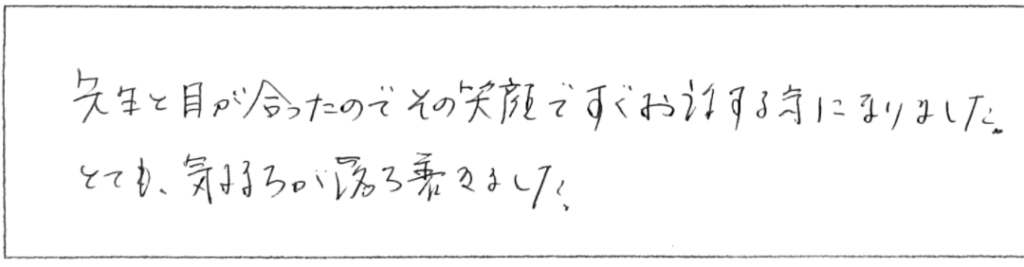 先生と目が合ったのでその笑顔ですぐお話する気になりました。
とても、気持ちが落ち着きました。